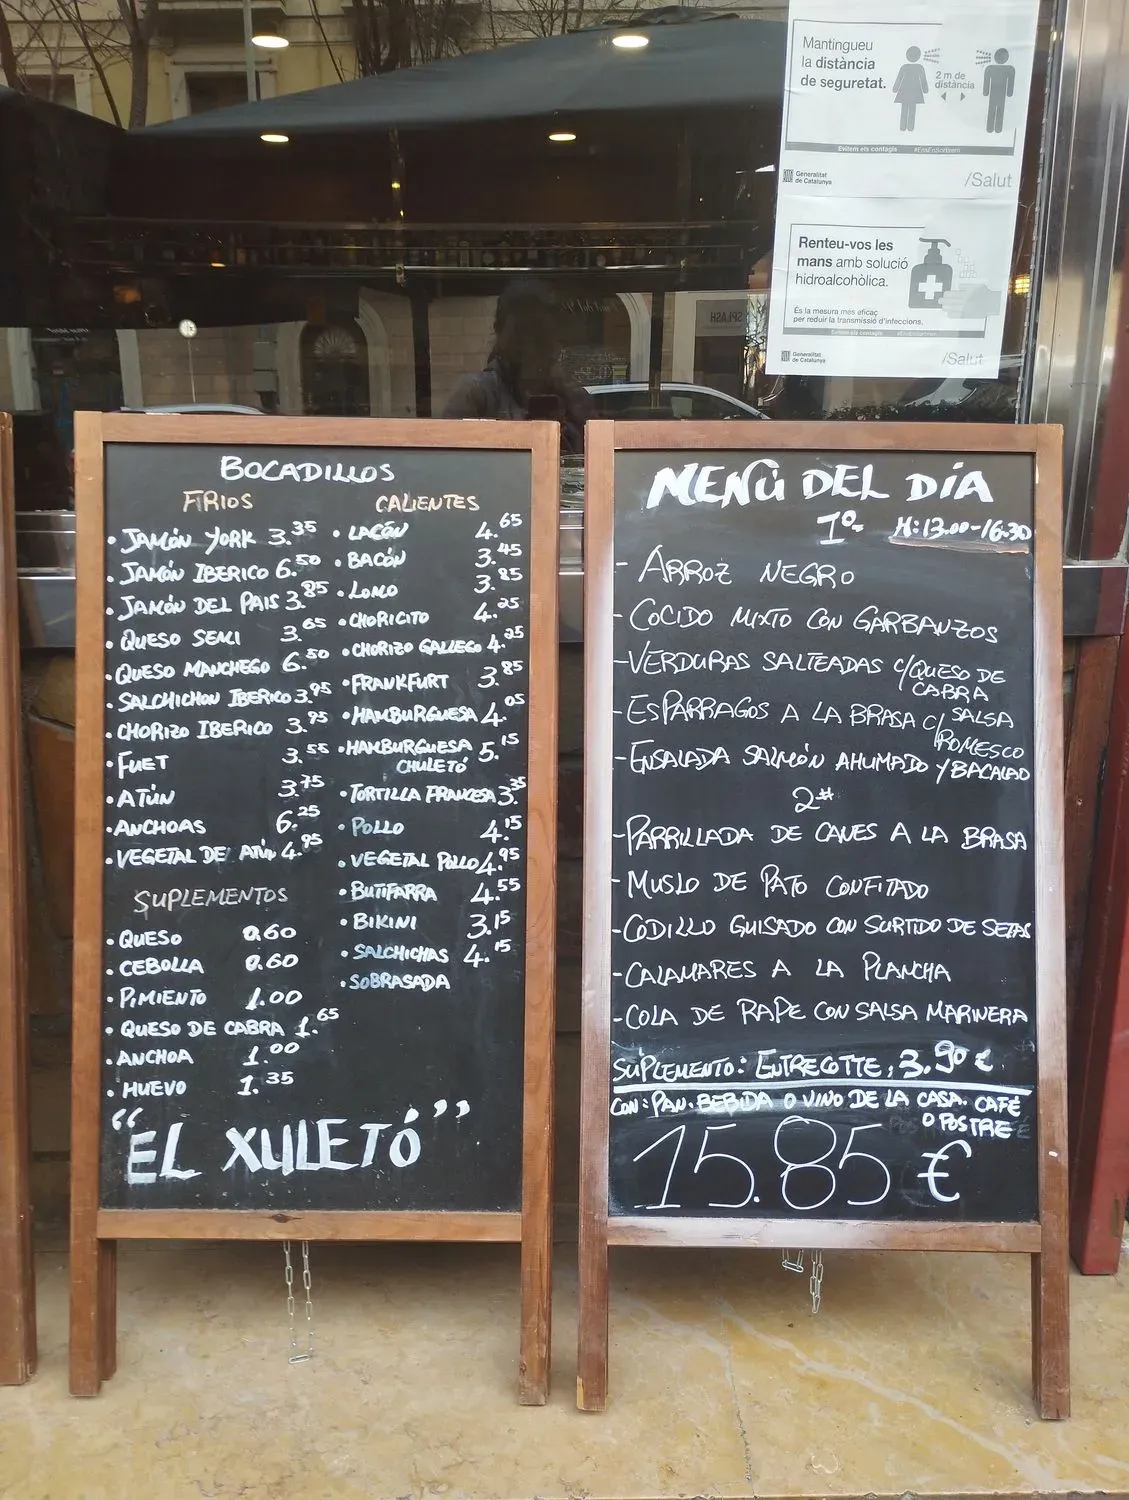 Mantingueu
la distància
de seguretat.
2 m de
distància
Evitem els contagis #EnsEnSortirem
Generalitat
de Catalunya
/Salut
Renteu-vos les
mans amb solució
hidroalcohòlica.
És la mesura més eficaç
per reduir la transmissió d'infeccions.
Evitem els contagis #EnsEnSortirem
Generalitat
de Catalunya
/Salut
SPLASH
BOCADILLOS
FIRIOS
· JAMÓN YORK 3.35
· JAMÓN IBERICO 6.50
· JAMÓN DEL PAIS 3.85
· QUESO SEMI 3.65
· QUESO MANCHEGO 6.50
· SALCHICHON IBERICO 3.95
· CHORIZO IBERICO 3.95
· FUET 3.55
· ATÚN 3.75
· ANCHOAS 6.25
· VEGETAL DE ATÚN 4.95
SUPLEMENTOS
· QUESO 0.60
· CEBOLLA 0.60
· PIMIENTO 1.00
· QUESO DE CABRA 1.65
· ANCHOA 1.00
· HUEVO 1.35
CALIENTES
· LACÓN 4.65
· BACÓN 3.45
· LOMO 3.85
· CHORICITO 4.25
· CHORIZO GALLEGO 4.25
· FRANKFURT 3.85
· HAMBURGUESA 4.05
· HAMBURGUESA 5.15
CHULETÓ
· TORTILLA FRANCESA 3.35
· POLLO 4.15
· VEGETAL POLLO 4.95
· BUTIFARRA 4.55
· BIKINI 3.15
· SALCHICHAS 4.15
· SOBRASADA
"EL XULETÓ"
MENÚ DEL DÍA
1º H: 13.00-16.30
- ARROZ NEGRO
- COCIDO MIXTO CON GARBANZOS
- VERDURAS SALTEADAS C/QUESO DE
CABRA
- ESPARRAGOS A LA BRASA C/ SALSA
ROMESCO
- ENSALADA SALMÓN AHUMADO Y BACALAO
2º
- PARRILLADA DE CANES A LA BRASA
- MUSLO DE PATO CONFITADO
- CODILLO GUISADO CON SURTIDO DE SETAS
- CALAMARES A LA PLANCHA
- COLA DE RAPE CON SALSA MARINERA
SUPLEMENTO: ENTRECOTTE, 3.90 €
CON: PAN. BEBIDA O VINO DE LA CASA. CAFÉ
O POSTRE
15.85 €